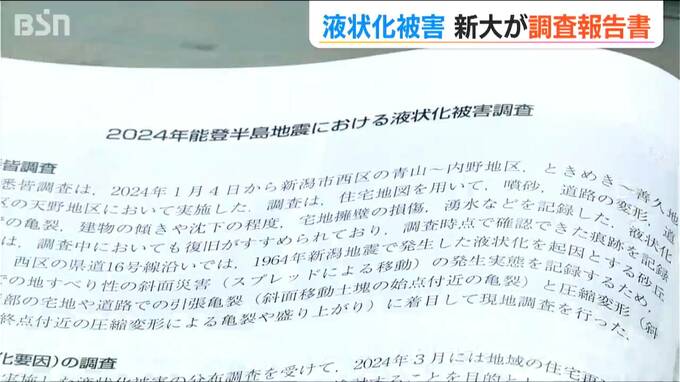 BSN
液状化被害 新大が調査報告書
2024年能登半島地震における液状化被害調査
皆調査
悉皆調査は，2024年1月4日から新潟市西区の青山～内野地区，ときめき～善久地
区の天野地区において実施した．調査は，住宅地図を用いて，噴砂，道路の変形，道
の亀裂，建物の傾きや沈下の程度，宅地擁壁の損傷，湧水などを記録した．液状化
は，調査中においても復旧がすすめられており，調査時点で確認できた痕跡を記録
西区の県道16号線沿いでは，1964年新潟地震で発生した液状化を起因とする砂丘
での地すべり性の斜面災害（スプレッドによる移動）の発生実態を記録するため，
部の宅地や道路での引張亀裂（斜面移動土塊の始点付近の亀裂）と圧縮変形（斜
終点付近の圧縮変形による亀裂や盛り上がり）に着目して現地調査を行った．
化要因）の調査
実施した液状化被害の分布調査を受けて，2024年3月には地域の住宅再
することを目的とし